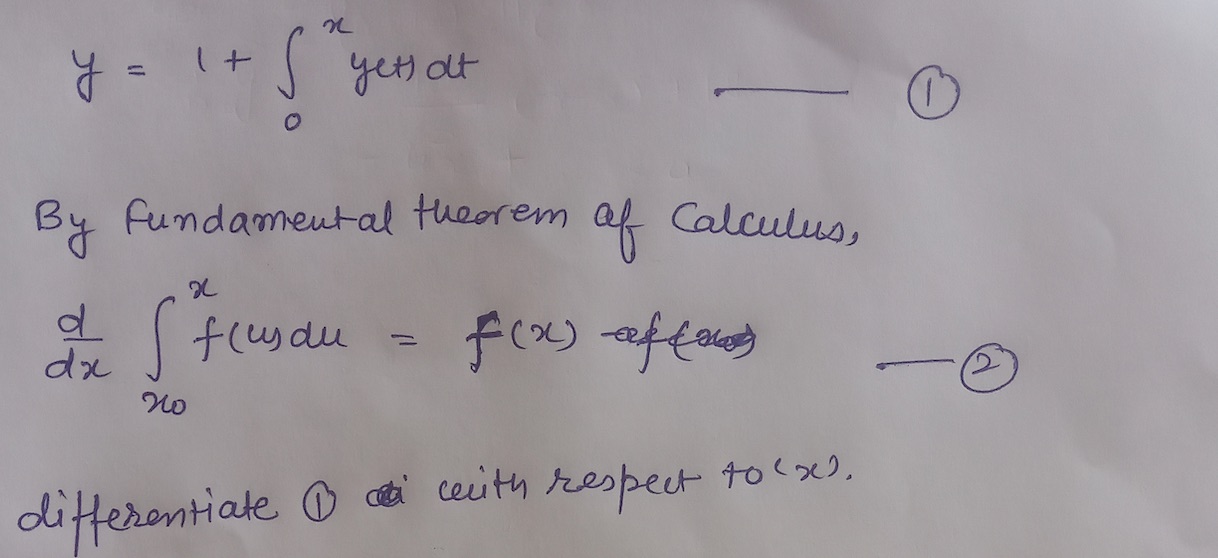 y = 1 + ∫₀ˣ y(t) dt ——— ①
By fundamental theorem of Calculus,
d/dx ∫ₓ₀ˣ f(u) du = f(x) — ②
differentiate ① with respect to (x).